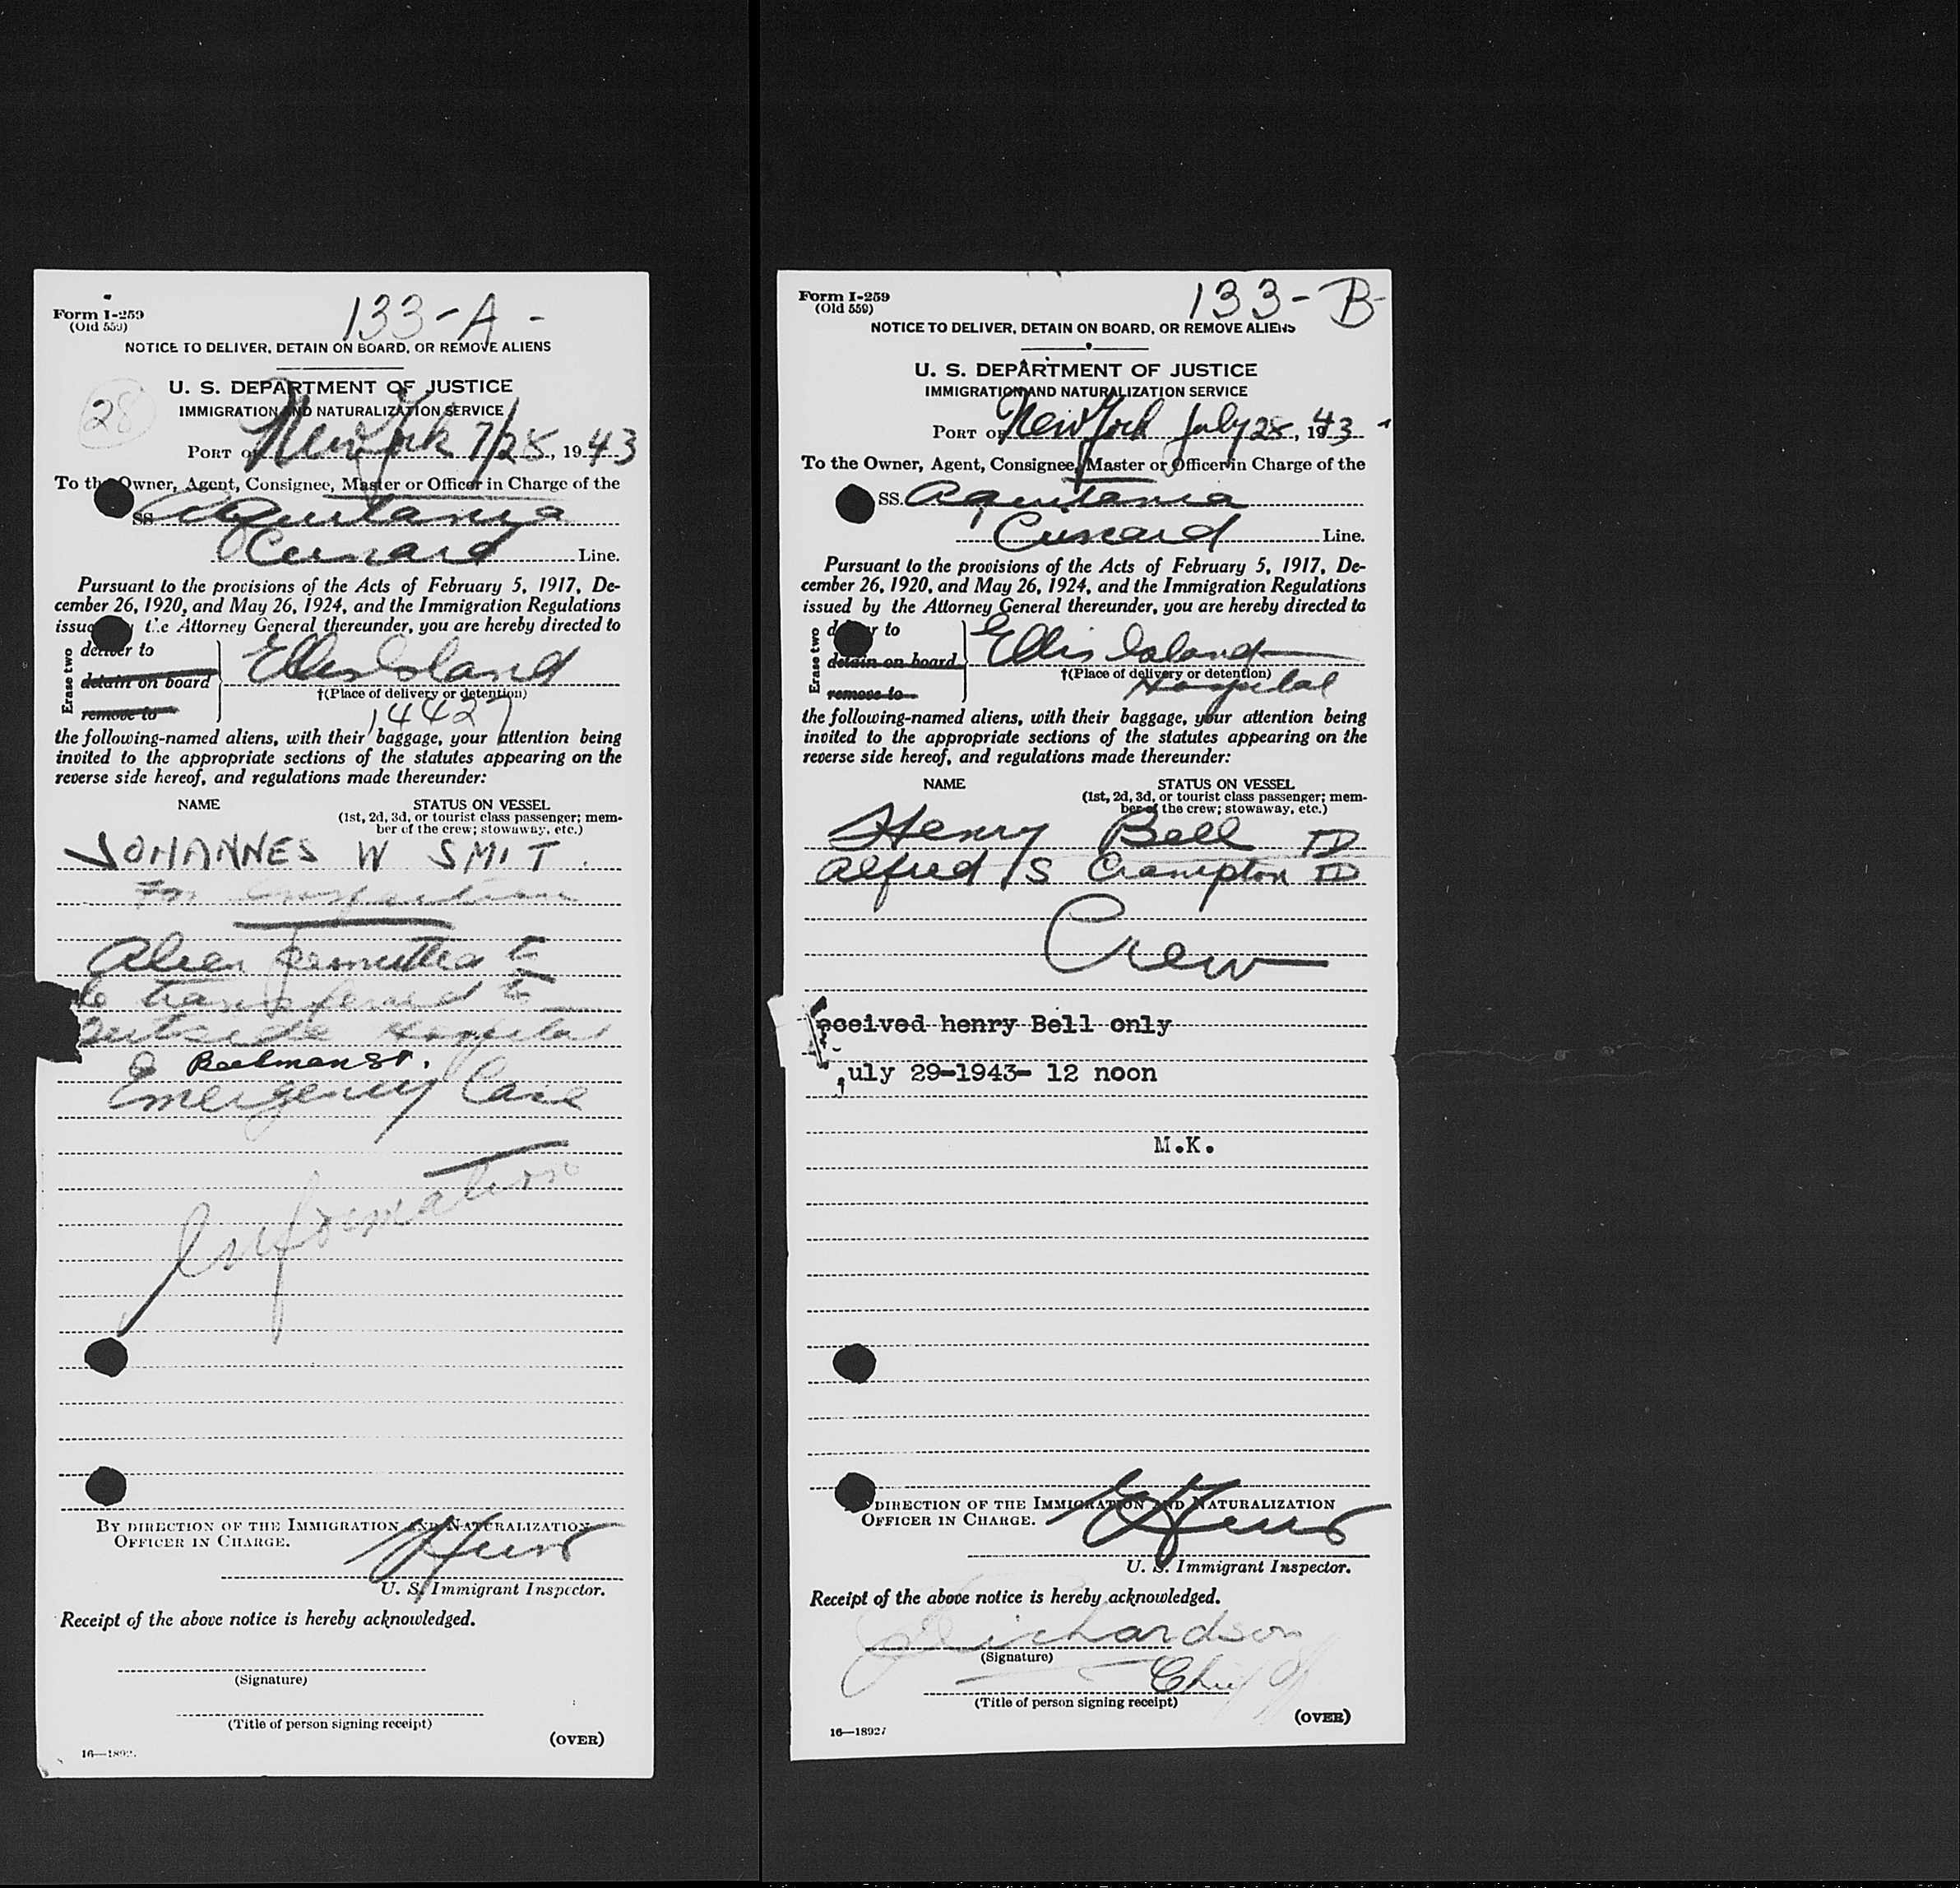 Form I-259
(Old 559)
133-A -
NOTICE TO DELIVER, DETAIN ON BOARD, OR REMOVE ALIENS
U. S. DEPARTMENT OF JUSTICE
28
IMMIGRATION AND NATURALIZATION SERVICE
PORT of New York 7/28, 1943
To the Owner, Agent, Consignee, Master or Officer in Charge of the
SS Aquitania
Cunard Line.
Pursuant to the provisions of the Acts of February 5, 1917, De-
cember 26, 1920, and May 26, 1924, and the Immigration Regulations
issued by the Attorney General thereunder, you are hereby directed to
Erase two
deliver to
detain on board
remove to
Ellis Island
†(Place of delivery or detention)
14427
the following-named aliens, with their baggage, your attention being
invited to the appropriate sections of the statutes appearing on the
reverse side hereof, and regulations made thereunder:
NAME STATUS ON VESSEL
(1st, 2d, 3d, or tourist class passenger; mem-
ber of the crew; stowaway, etc.)
JOHANNES W SMIT.
For
Alien permitted to
be transferred to
Outside Hospital
Beekman St.
Emergency Case
Information
BY DIRECTION OF THE IMMIGRATION AND NATURALIZATION
OFFICER IN CHARGE.
U. S. Immigrant Inspector.
Receipt of the above notice is hereby acknowledged.
(Signature)
(Title of person signing receipt)
(OVER)
16—1892
Form I-259
(Old 559)
133-B-
NOTICE TO DELIVER, DETAIN ON BOARD, OR REMOVE ALIENS
U. S. DEPARTMENT OF JUSTICE
IMMIGRATION AND NATURALIZATION SERVICE
PORT OF New York July 28, 1943
To the Owner, Agent, Consignee, Master or Officer in Charge of the
SS. Aquitania
Cunard Line.
Pursuant to the provisions of the Acts of February 5, 1917, De-
cember 26, 1920, and May 26, 1924, and the Immigration Regulations
issued by the Attorney General thereunder, you are hereby directed to
Erase two
deliver to
detain on board
remove to
Ellis Island
†(Place of delivery or detention)
Hospital
the following-named aliens, with their baggage, your attention being
invited to the appropriate sections of the statutes appearing on the
reverse side hereof, and regulations made thereunder:
NAME STATUS ON VESSEL
(1st, 2d, 3d, or tourist class passenger; mem-
ber of the crew; stowaway, etc.)
Henry Bell TD
Alfred S Crampton TD
Crew
eceived henry Bell only
uly 29-1943- 12 noon
M.K.
DIRECTION OF THE IMMIGRATION AND NATURALIZATION
OFFICER IN CHARGE.
U. S. Immigrant Inspector.
Receipt of the above notice is hereby acknowledged.
Richardson
(Signature)
Chief Off
(Title of person signing receipt)
(OVER)
16—18927